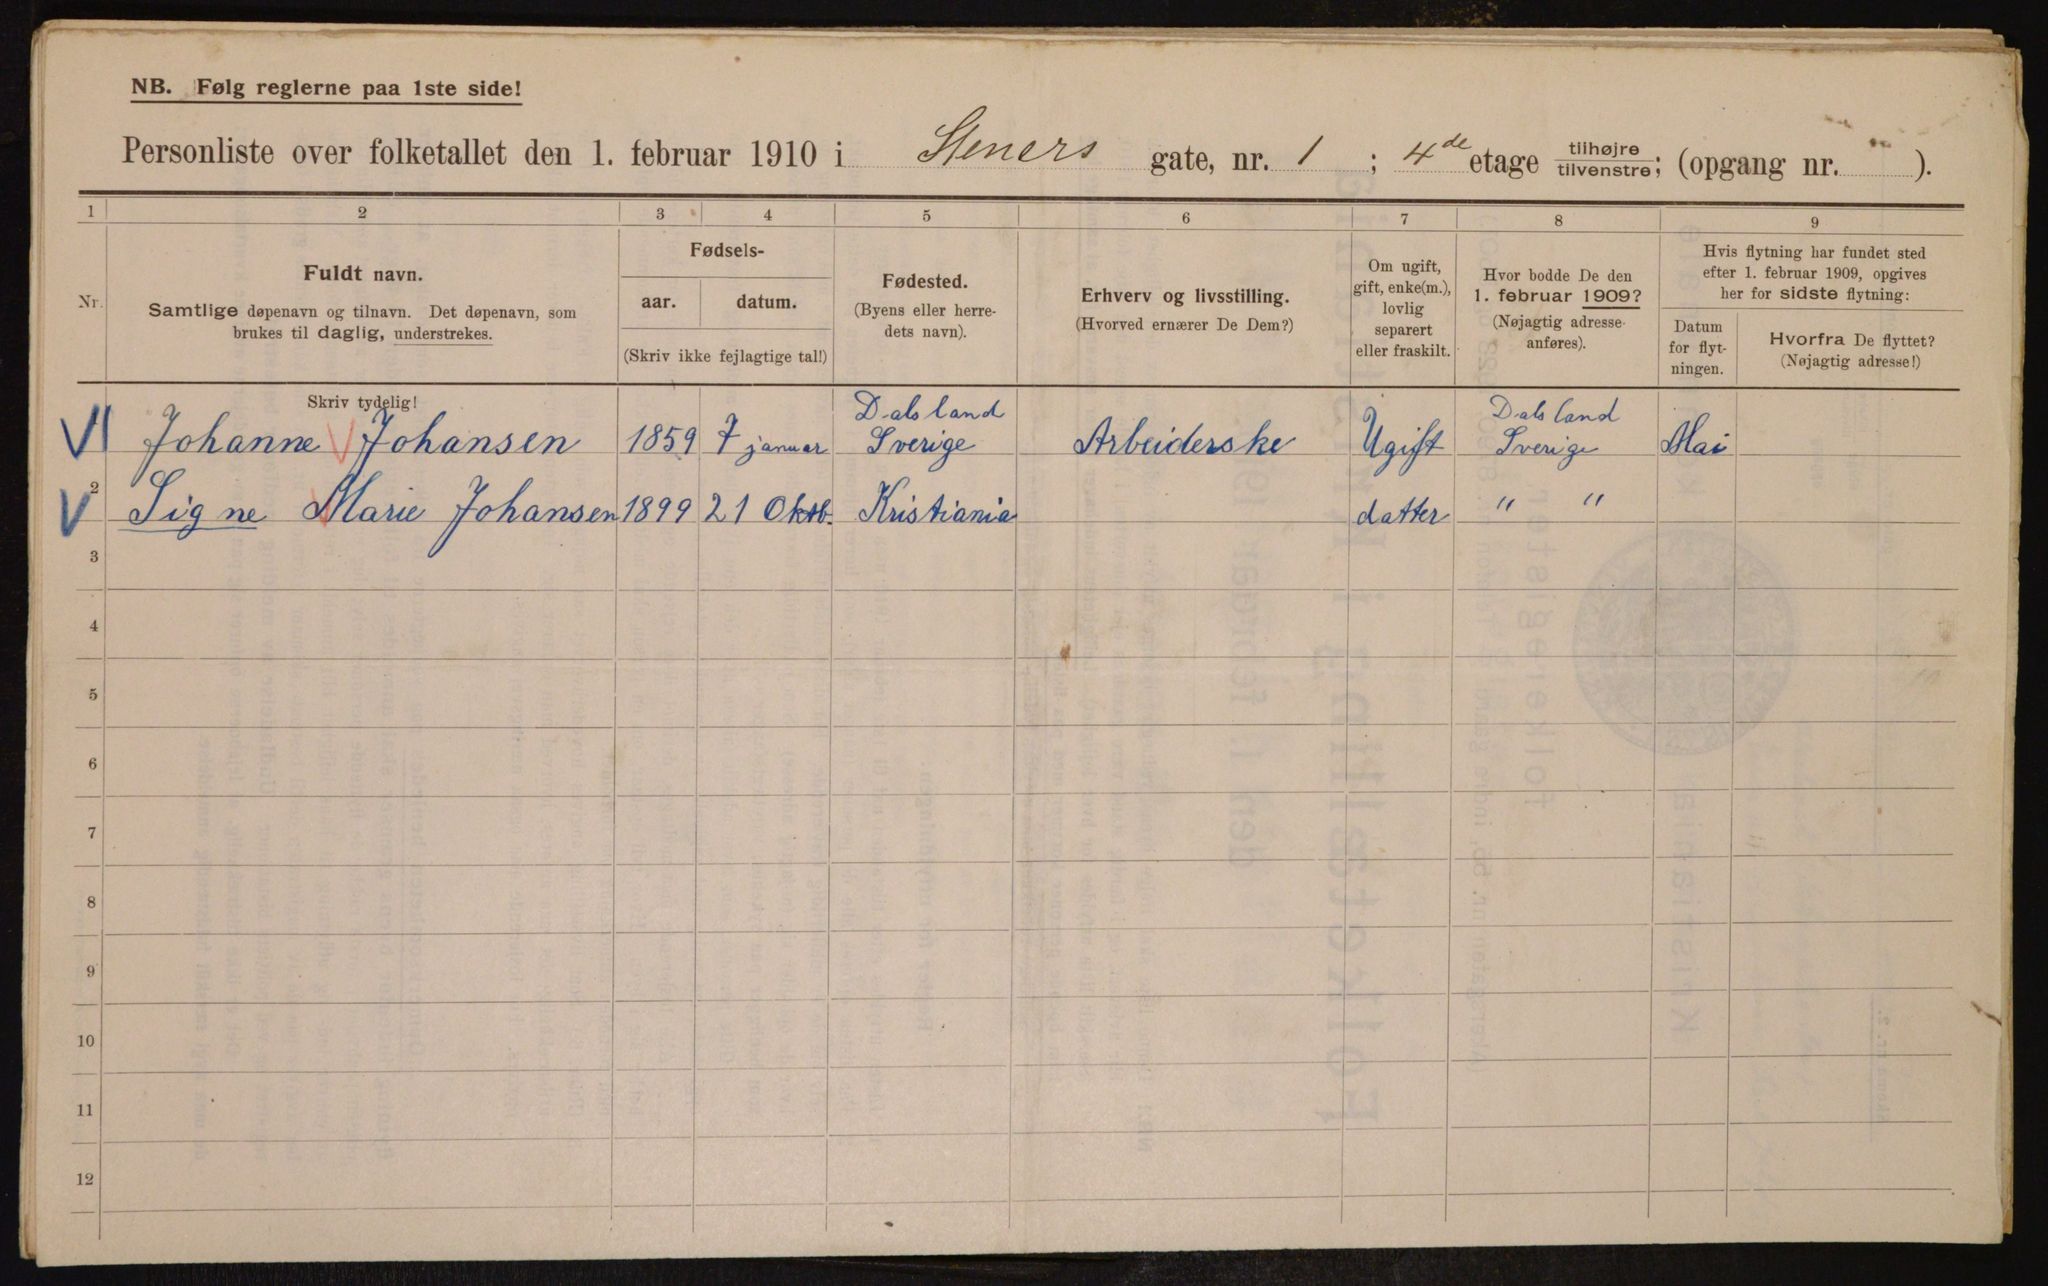 NB. Følg reglerne paa 1ste side!
Personliste over folketallet den 1. februar 1910 i Steners gate, nr. 1 ; 4de etage tilhøjre/tilvenstre; (opgang nr. ).
1 2 3 4 5 6 7 8 9
Nr.
Fuldt navn.
Samtlige døpenavn og tilnavn. Det døpenavn, som
brukes til daglig, understrekes.
Fødsels-
aar. datum.
(Skriv ikke fejlagtige tal!)
Fødested.
(Byens eller herre-
dets navn).
Erhverv og livsstilling.
(Hvorved ernærer De Dem?)
Om ugift,
gift, enke(m.),
lovlig
separert
eller fraskilt.
Hvor bodde De den
1. februar 1909?
(Nøjagtig adresse
anføres).
Hvis flytning har fundet sted
efter 1. februar 1909, opgives
her for sidste flytning:
Datum
for flyt-
ningen.
Hvorfra De flyttet?
(Nøjagtig adresse!)
Skriv tydelig!
Dalsland Dalsland
1 Johanne Johansen 1859 7 januar Sverige Arbeiderske Ugift Sverige Mai
2 Signe Marie Johansen 1899 21 Oktb. Kristiania datter " "
3
4
5
6
7
8
9
10
11
12